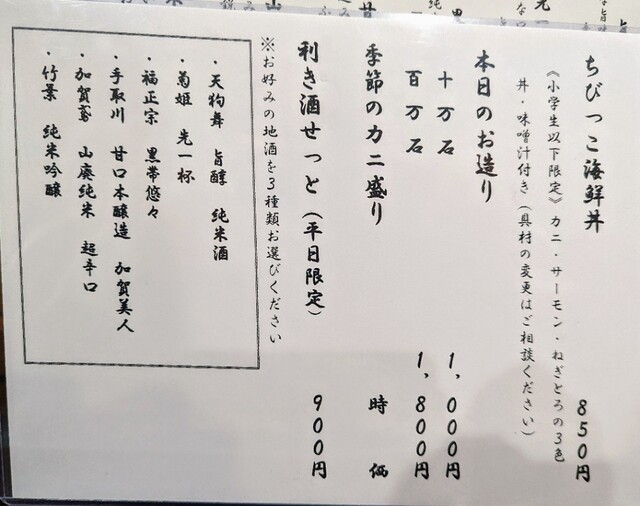 ちびっこ海鮮丼 850円
《小学生以下限定》カニ・サーモン・ねぎとろの3色
丼・味噌汁付き(具材の変更はご相談ください)
本日のお造り
十万石 1,000円
百万石 1,800円
季節のカニ盛り 時価
利き酒せっと(平日限定) 900円
※お好みの地酒を3種類お選びください
・天狗舞 旨醇 純米酒
・菊姫 先一杯
・福正宗 黒帯悠々
・手取川 甘口本醸造 加賀美人
・加賀鳶 山廃純米 超辛口
・竹景 純米吟醸